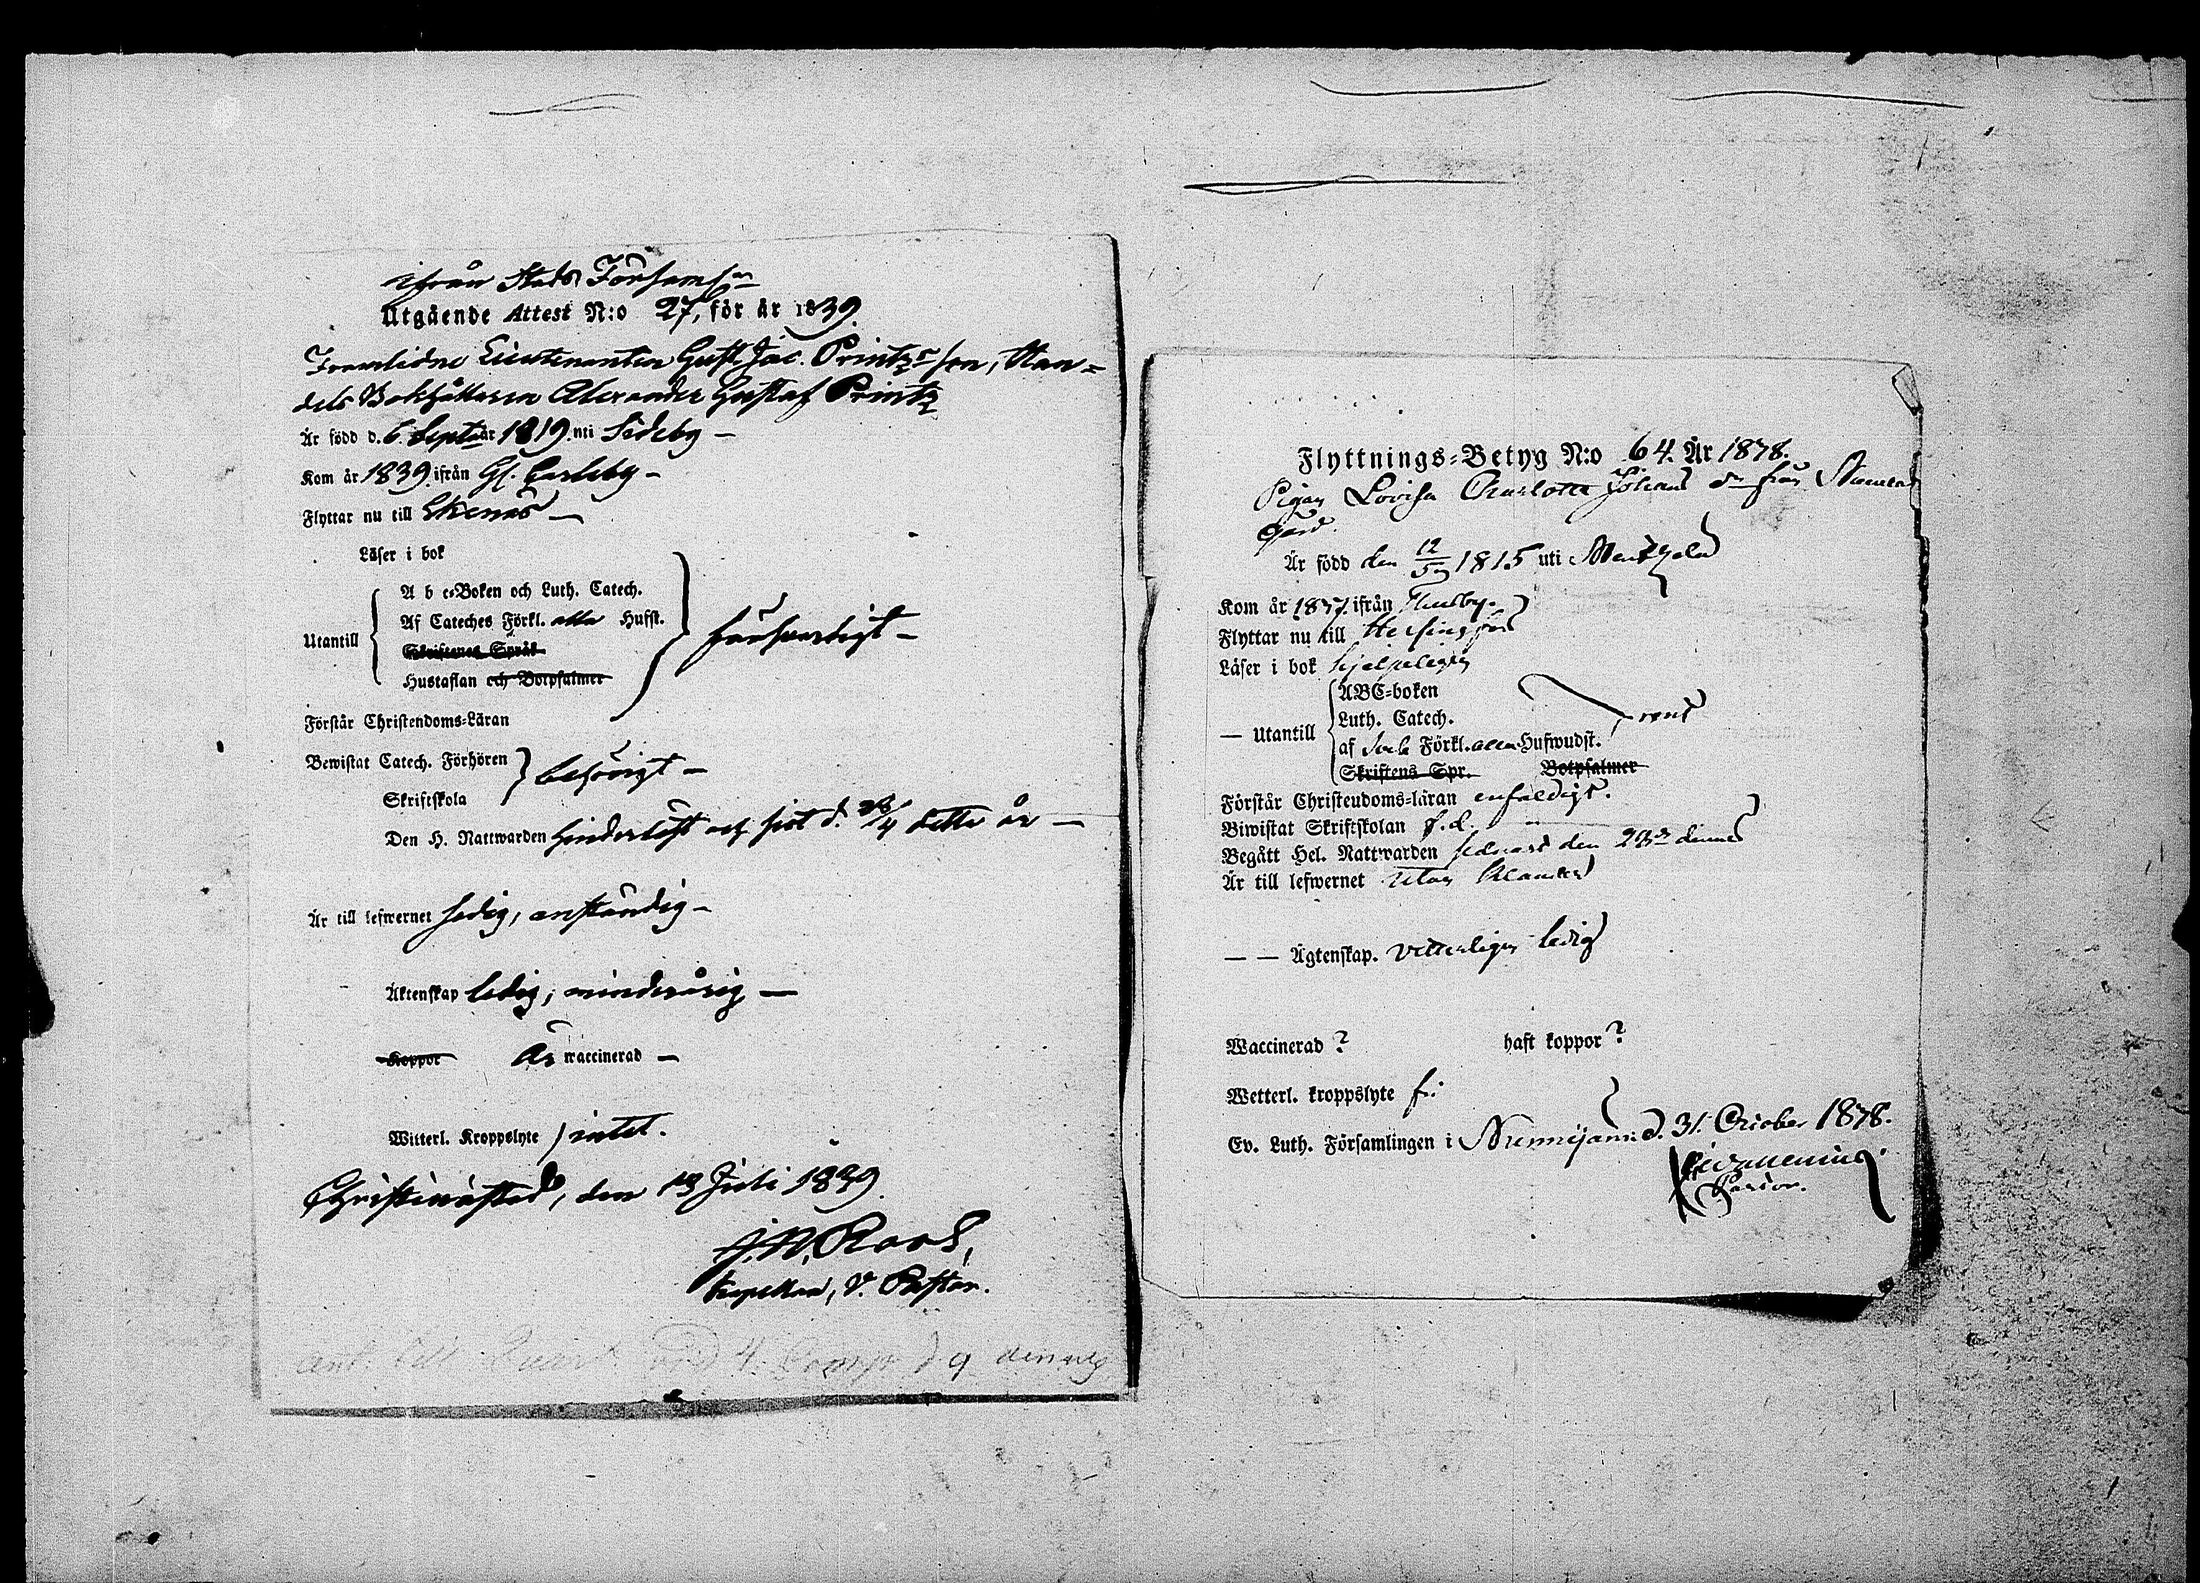 ifrån Stads Församln
Utgående Attest N:o 27, för år 1839.
Framlidne Lieutenanten Gust. Jac. Printz's son, Han=
dels Bokhållaren Alexander Gustaf Printz
Är född d. 6 Sept. år 1819. uti Sideby –
Kom år 1839. ifrån Gl. Carleby –
Flyttar nu till Ekenäs –
Läser i bok
A b c-Boken och Luth. Catech.
Af Cateches Förkl. alla Hufst.
Utantill
försvarligt –
Skriftenes Språk
Hustaflan och Botpsalmer
Förstår Christendoms-Läran
Bewistat Catech. Förhören
behörigt –
Skriftskola
Den H. Nattwarden hinderlöst och sist d. /4 detta år –
Är till lefwernet sedig, anständig –
Äktenskap ledig, minderårig –
Koppor Är waccinerad –
Witterl. Kroppslyte intet.
Christinæstad, den 13 Juli 1839.
J. N. Roos,
Kapellan, V. Pastor.
ant. till 4. Comp d. 9
Flyttnings-Betyg N:o 64. År 1878.
Pigan Lovisa Charlotta Johans dr från
Gård.
Är född den 12/5 1815 uti Mentzälä
Kom år ifrån Thusby.
Flyttar nu till Helsingfors
Läser i bok hjelpligen
ABC-boken
Luth. Catech.
— Utantill
rent
af Förkl. alla Hufwudst.
Skriftens Spr. Botpsalmer
Förstår Christendoms-läran enfaldigt.
Biwistat Skriftskolan f. d.
Begått Hel. Nattwarden sednast den dennes
Är till lefwernet utan klander
— — Ägtenskap. vetterligen ledig
Waccinerad ? haft koppor ?
Wetterl. kroppslyte fri
Ev. Luth. Församlingen i Nummijärvi d. 31. October 1878.
Pastor.